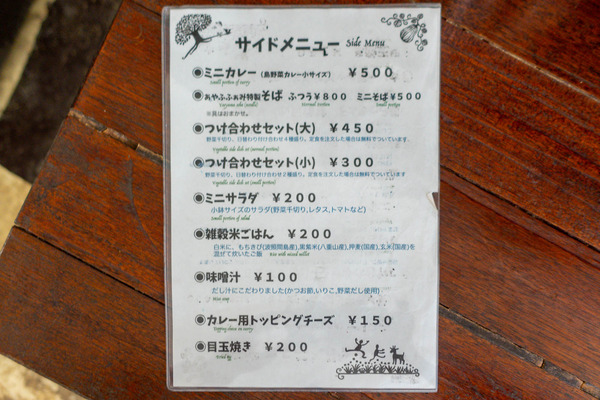 サイドメニュー Side Menu
◉ミニカレー(島野菜カレー小サイズ) ¥500
Small portion of curry
◉あやふふぁみ特製そば ふつう¥800 ミニそば¥500
Yaeyama soba (noodle) Normal portion Small portion
※具はおまかせ。
◉つけ合わせセット(大) ¥450
野菜千切り、日替わり付け合わせ4種盛り。定食を注文した場合は無料でついています。
Vegetable side dish set (normal portion)
◉つけ合わせセット(小) ¥300
野菜千切り、日替わり付け合わせ2種盛り。定食を注文した場合は無料でついています
Vegetable side dish set (small portion)
◉ミニサラダ ¥200
小鉢サイズのサラダ(野菜千切,レタス,トマトなど)
Small portion of salad
◉雑穀米ごはん ¥200
白米に、もちきび(波照間島産),黒紫米(八重山産),押麦(国産),玄米(国産)を
混ぜて炊いたご飯 Rice with mixed millet
◉味噌汁 ¥100
だし汁にこだわりました(かつお節,いりこ,野菜だし使用)
Miso soup
◉カレー用トッピングチーズ ¥150
Topping cheese on curry
◉目玉焼き ¥200
Fried egg